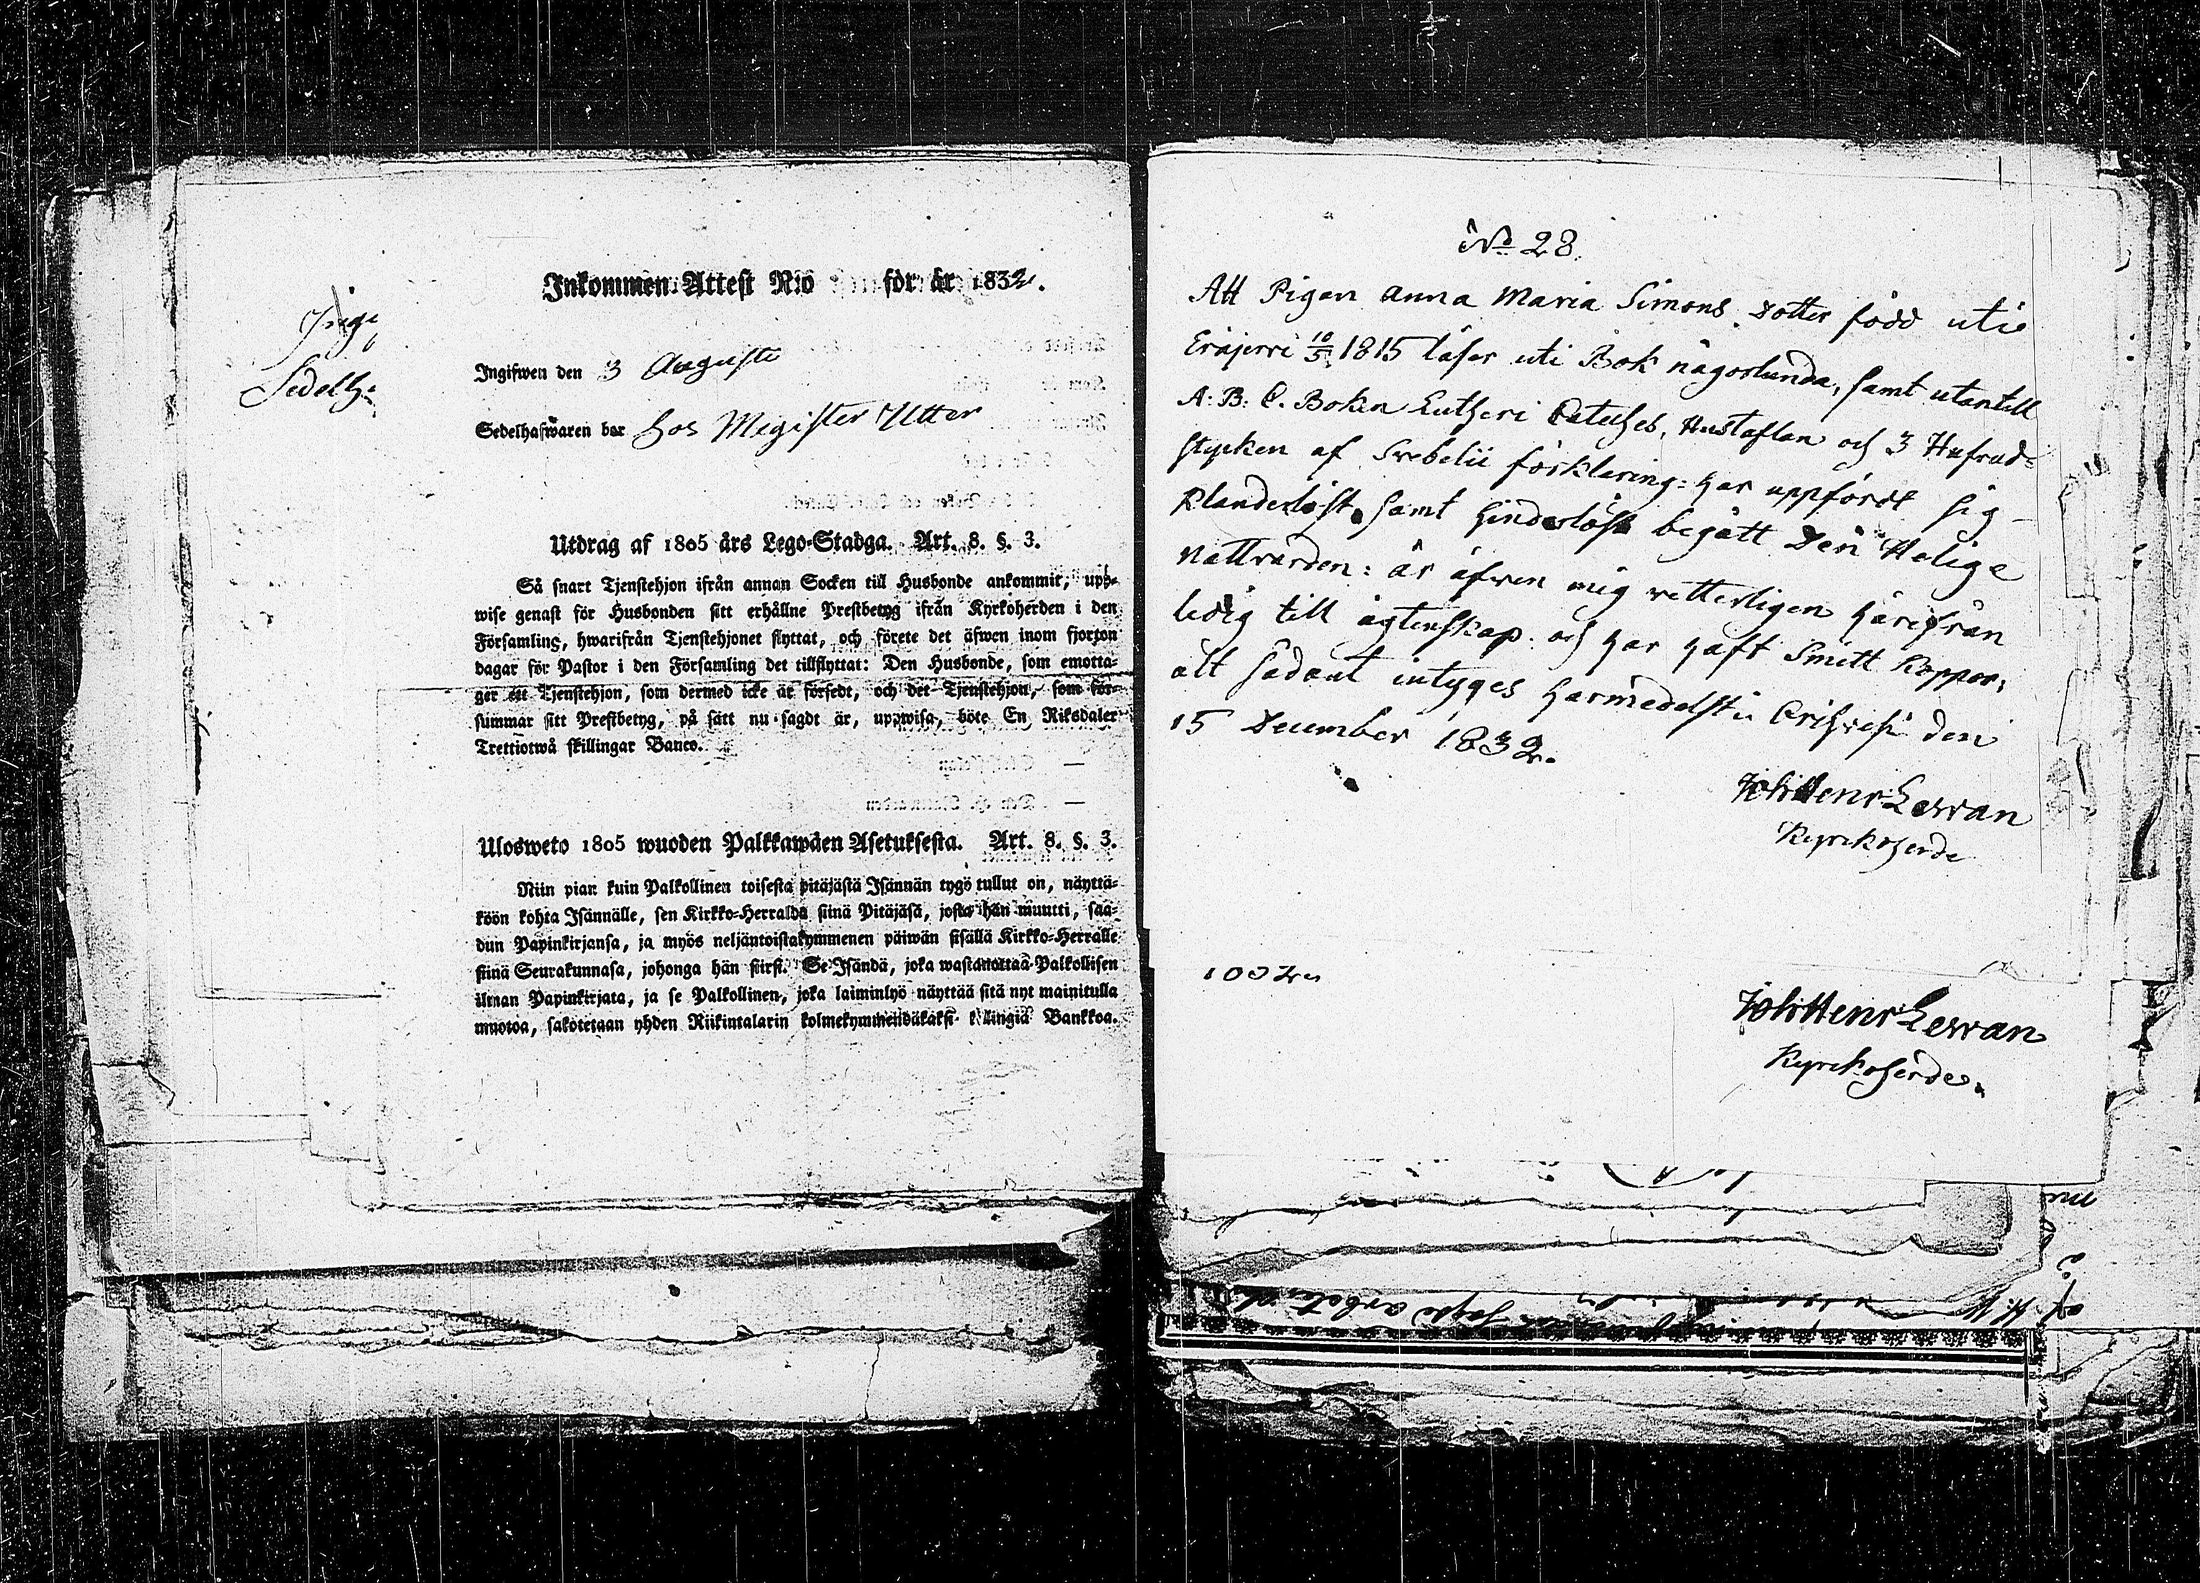 Inkommen Attest N:o för år 1832.
Ingifwen den 3 Augusti
Sedelhafwaren bor hos Magister Utter
Sedelh:
Utdrag af 1805 års Lego-Stadga. Art. 8. §. 3.
Så snart Tjenstehjon ifrån annan Socken till Husbonde ankommit, upp-
wise genast för Husbonden sitt erhållne Prestbetyg ifrån Kyrkoherden i den
Församling, hwarifrån Tjenstehjonet flyttat, och förete det äfwen inom fjorton
dagar för Pastor i den Församling det tillflyttat: Den Husbonde, som emotta-
ger ett Tjenstehjon, som dermed icke är försedt, och det Tjenstehjon, som för-
summar sitt Prestbetyg, på sätt nu sagdt är, uppwisa, böte En Riksdaler
Trettiotwå skillingar Banco.
Ulosweto 1805 wuoden Palkkawäen Asetuksesta. Art. 8. §. 3.
Niin pian kuin Palkollinen toisesta pitäjästä Isännän tygö tullut on, näyttä-
köön kohta Isännälle, sen Kirkko-Herralda siinä Pitäjäsä, josta hän muutti, saa-
dun Papinkirjansa, ja myös neljäntoistakymmenen päiwän sisällä Kirkko-Herralle
siinä Seurakunnasa, johonga hän siirsi. Se Isändä, joka wastanottaa Palkollisen
ilman Papinkirjata, ja se Palkollinen, joka laiminlyö näyttää sitä nyt mainitulla
muotoa, sakotetaan yhden Riikintalarin kolmekymmendäkaksi killingiä Bankkoa.
No 28.
Att Pigan Anna Maria Simons dotter född uti
Eräjerri 10/5 1815 läser uti Bok någorlunda, samt utantill
A: B: C. Boken Lutheri Cateches, Hustaflan och 3 Hufvud-
stycken af Svebelii förklaring: har uppfördt sig
Klanderlöst, samt hinderlöst begått Den Helige
Nattvarden: är äfven mig vetterligen härifrån
ledig till ägtenskap. och har haft Smitt Koppor,
att sådant intyges harmedelst: Orihvesi den
15 December 1832.
Joh Henr Levvan
Kyrckoherde
Joh Henr Levvan
Kyrckoherde.